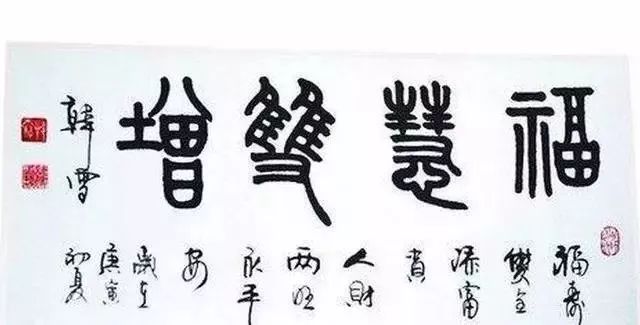 福慧雙增
福壽
雙全
禄富
貴
人財
两旺
永平
安
歲在
庚寅
初夏
韓雪